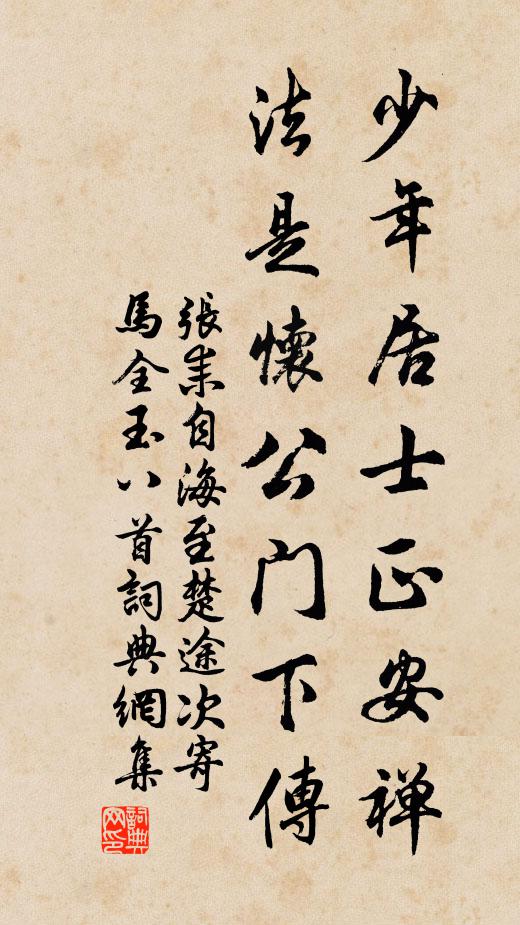 少年居士正安禅
法是懷公门下傳
張耒自海至楚途次寄
馬全玉八首詞典網集
詞典网印